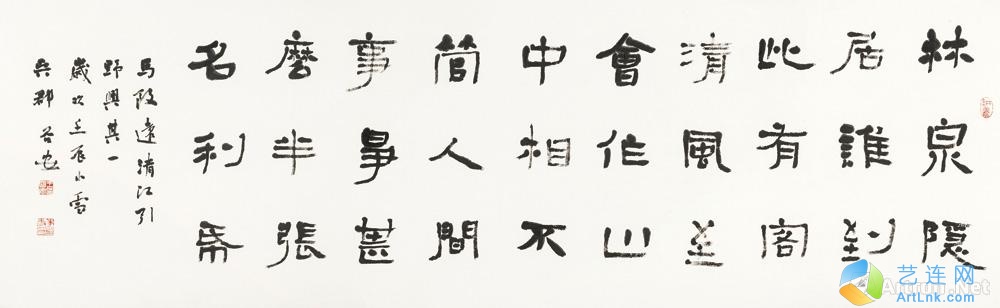 林泉隱
居誰到
此有客
清風至
會作山
中相不
管人間
事爭甚
麼半張
名利帋
馬致遠清江引
野興其一
歲次壬辰小雪
吳郡
艺连网
ArtLnk.com